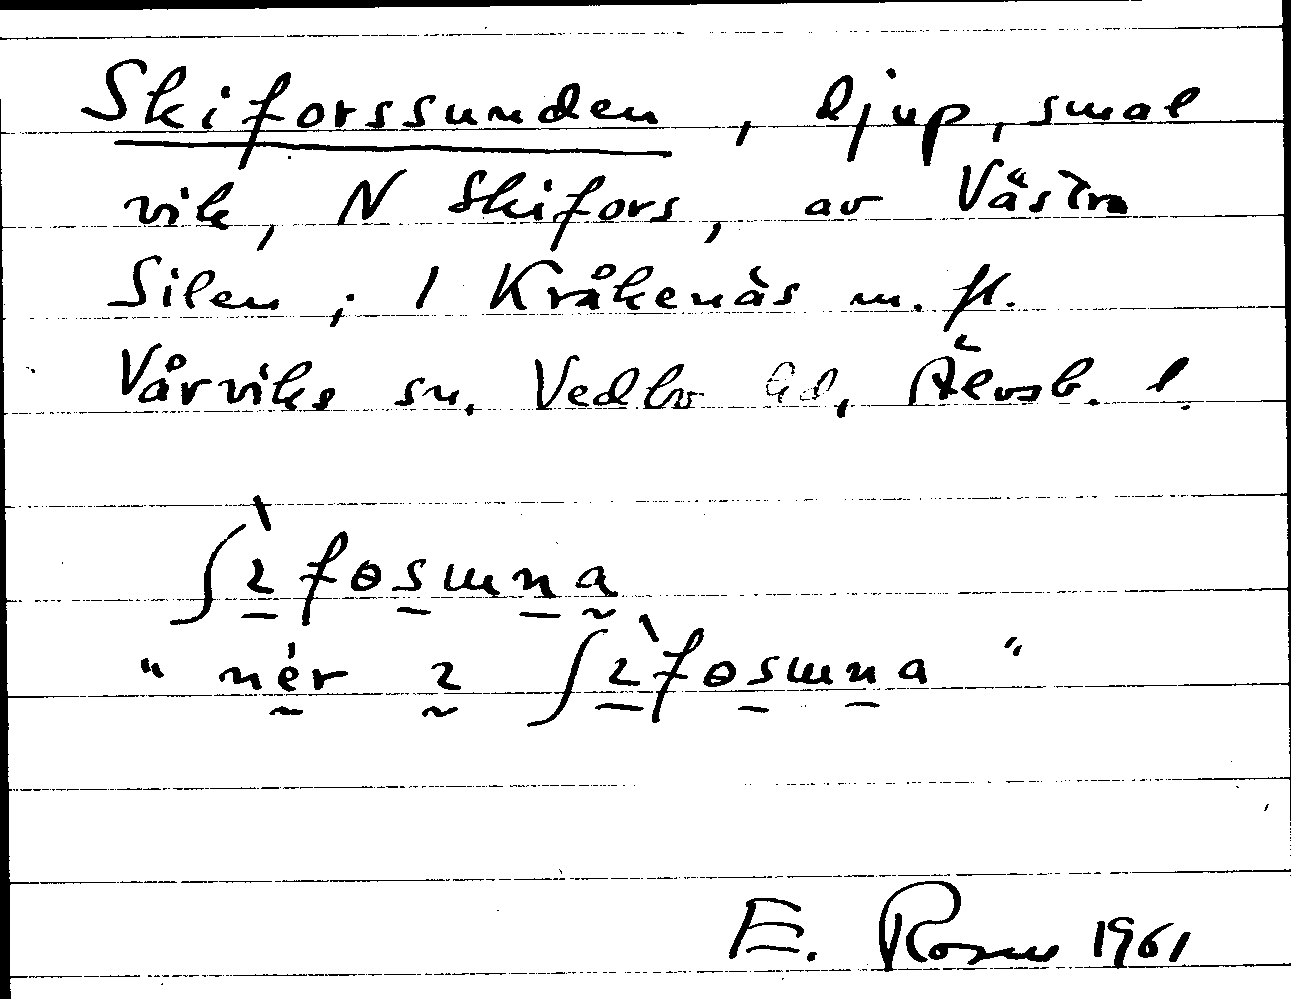 Skiforssunden, djup, smal
vik, N Skifors, av Västra
Silen; 1 Kråkenäs m. fl.
Vårviks sn, Vedbo hd, Älvsb. l.
ʃ2̀fosuna
"nér 2 ʃ2̀fosuna"
E. Rosun 1961